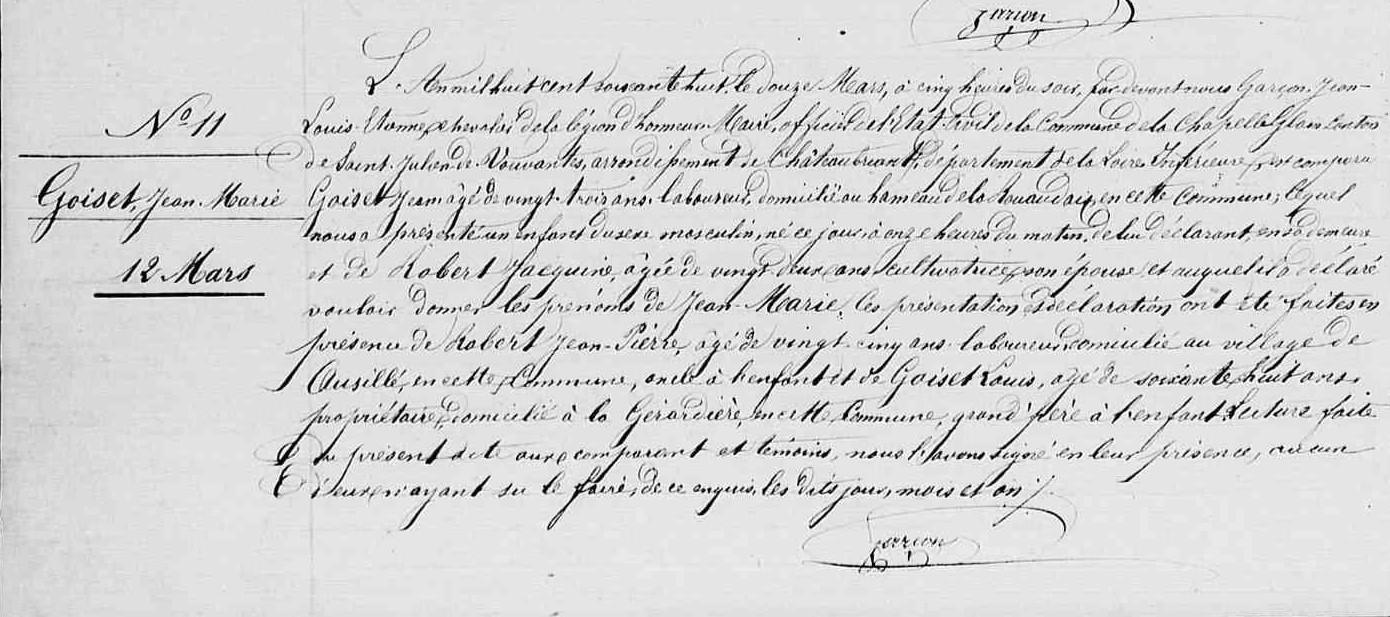 Garçon
L'An mil huit cent soixante huit, le douze Mars, à cinq heures du soir, par devant nous Garçon Jean-
Louis Etienne, chevalier de la légion d'honneur, Maire, officier de l'Etat-Civil de la Commune de la Chapelle Glain Canton
de Saint Julien de Vouvantes, arrondissement de Châteaubriant, département de la Loire Inférieure, est comparu
Nº 11
Goiset, Jean-Marie
12 Mars
Goiset Jean âgé de vingt-trois ans, laboureur, domicilié au hameau de la Rouaudais, en cette Commune; lequel
nous a présenté un enfant du sexe masculin, né ce jour, à onze heures du matin, de lui déclarant, en sa demeure
et de Robert Jacquine, âgée de vingt-deux ans, cultivatrice, son épouse et auquel il a déclaré
vouloir donner les prénoms de Jean-Marie; les présentation & déclaration ont été faites en
présence de Robert Jean-Pierre, âgé de vingt-cinq ans, laboureur, domicilié au village de
Ausillé, en cette Commune, oncle à l'enfant et de Goiset Louis, âgé de soixante, huit ans,
propriétaire, domicilié à la Gérardière, en cette Commune, grand'père à l'enfant. Lecture faite
du présent acte aux comparant et témoins, nous l'avons signé en leur présence, aucun
d'eux n'ayant su le faire, de ce enquis, les dits jour, mois et an ./.
Garçon